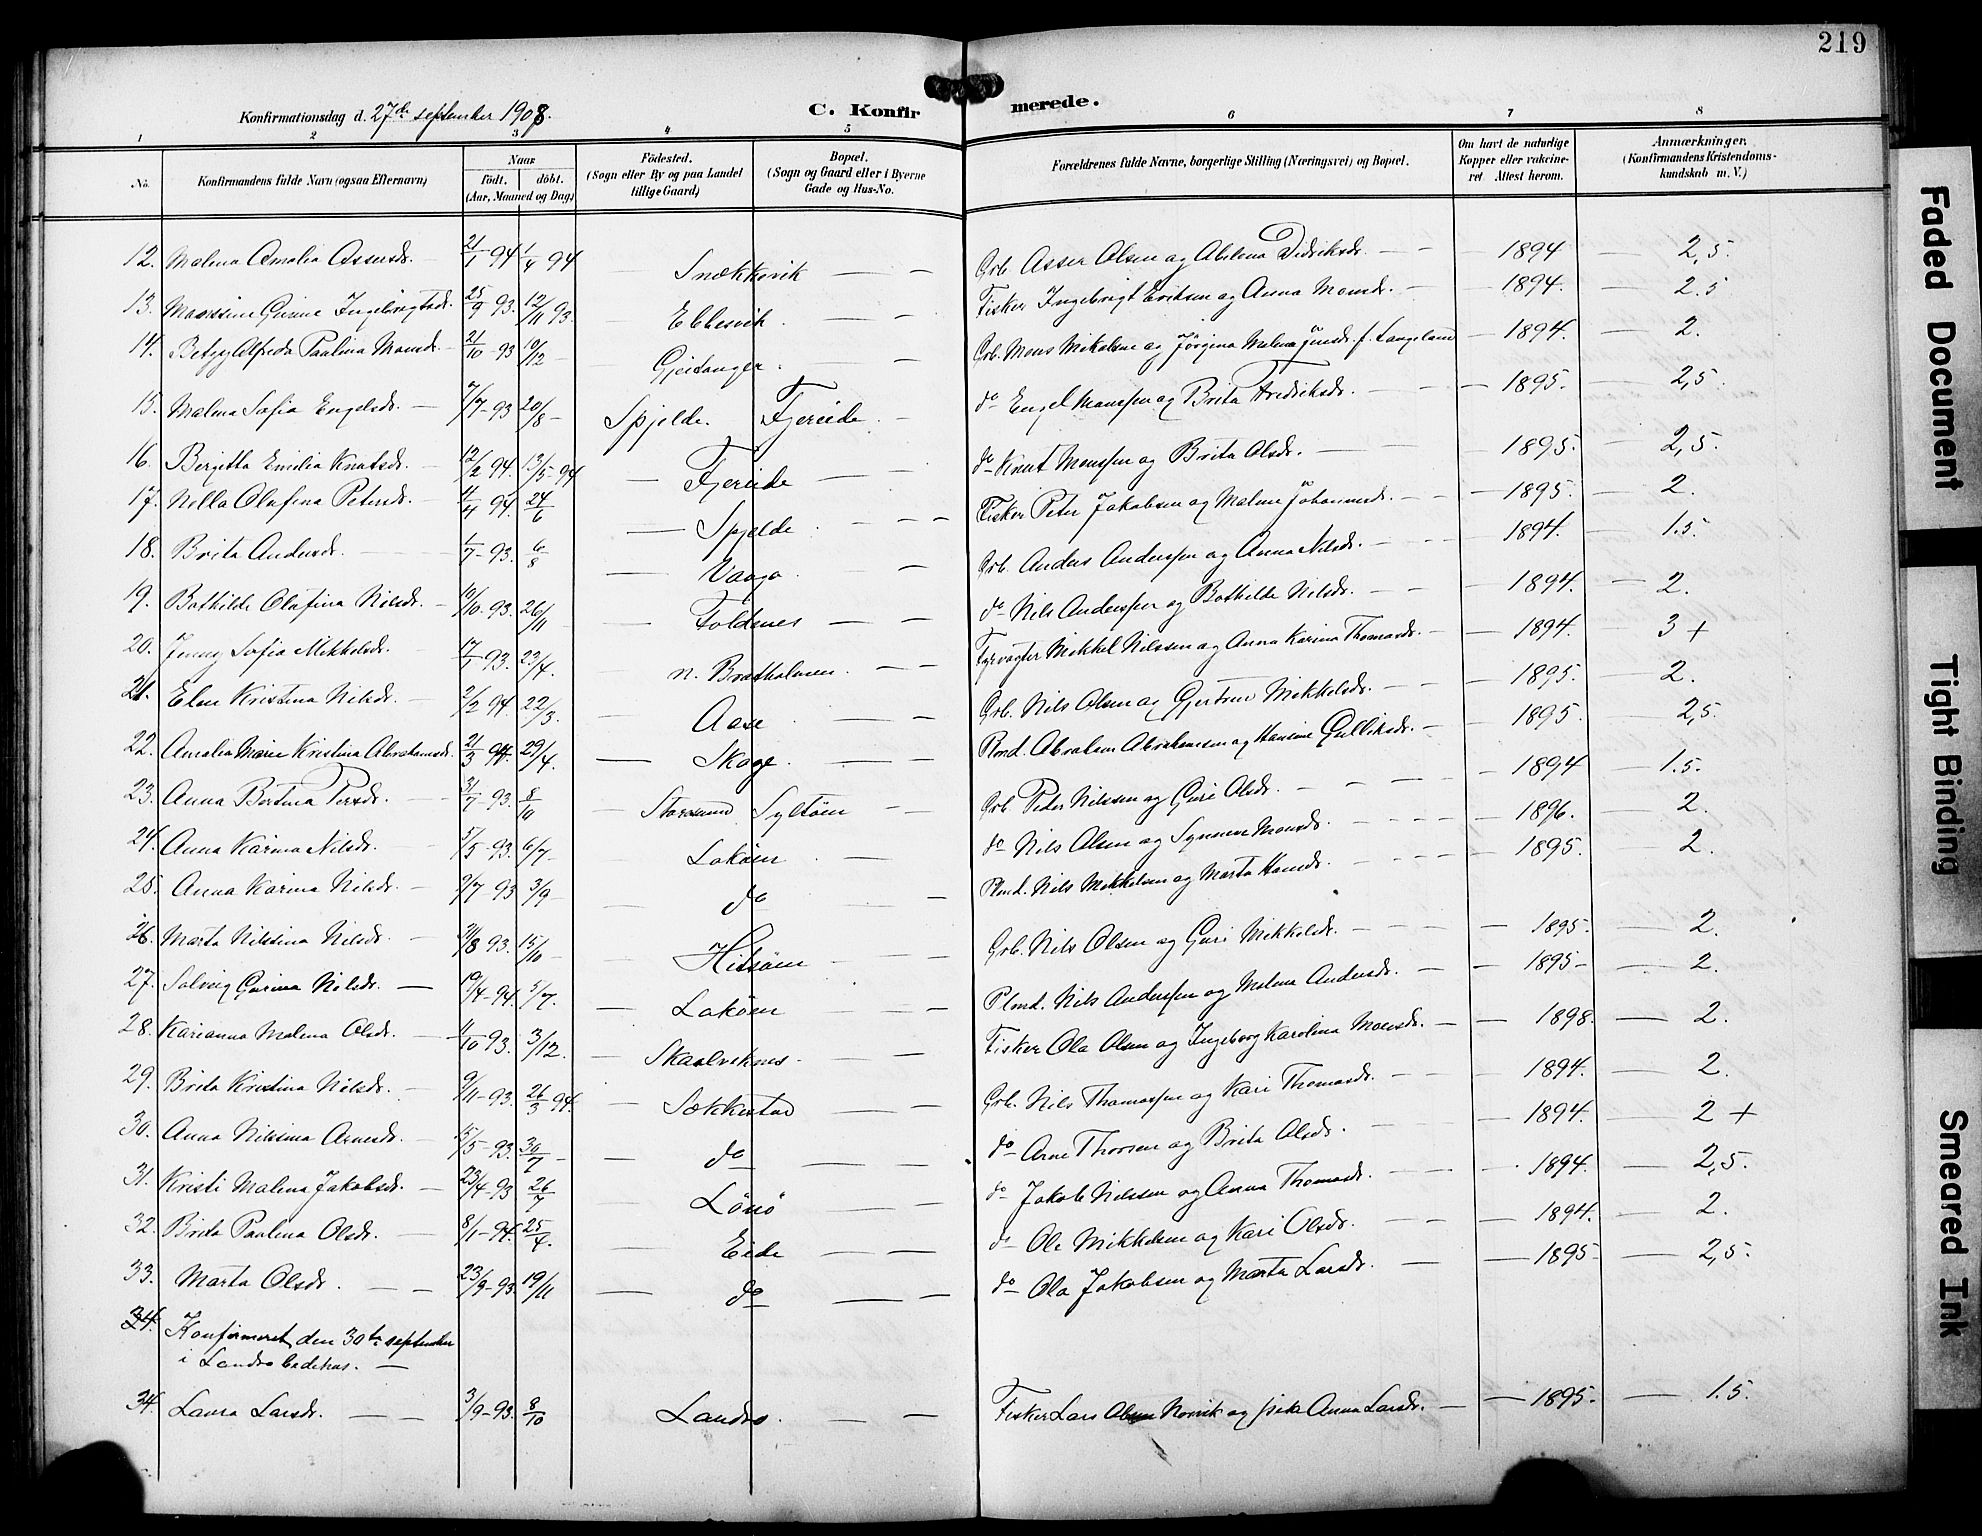 219
Konfirmationsdag d. 27de september 1908.
C. Konfirmerede.
1 2 3 4 5 6 7 8
No.
Konfirmandens fulde Navn (ogsaa Efternavn)
Naar
födt. döbt.
(Aar, Maaned og Dag)
Födested.
(Sogn eller By og paa Landet
tillige Gaard)
Bopæl.
(Sogn og Gaard eller i Byerne
Gade og Hus-No.
Forældrenes fulde Navne, borgerlige Stilling (Næringsvei) og Bopæl.
Om havt de naturlige
Kopper eller vaccine-
ret Attest herom.
Anmærkninger.
(Konfirmandens Kristendoms-
kundskab m. V.)
12. Malena Amalia Assersdr. 21/1 94 1/4 94 Snekkevik Grb. Asser Olsen og Abelena Didriksdr. 1894 2,5.
13. Ingebrigtsdr. 25/9 93. 12/11 93. Ebbesvik Fisker Ingebrigt Eriksen og Anna Monsdr. 1894. 2.5
14. Betzy Alfreda Paulina Monsdr. 21/10 93 10/12 Gjeitanger. Grb. Mons Mikalsen og Jörgina Malena Jensdr. f. Langeland 1894. 2.
15. Malena Sofia Engelsdr. 7/7-93 20/8 Spjelde. Fjereide do Engel Monssen og Brita Fredriksdr. 1895. 2,5.
16. Bergitta Emilia Knutsdr. 12/2 94. 13/5-94 Fjereide do Knut Monssen og Brita Olsdr. 1895. 2,5.
17. Nella Olafina Petersdr. 11/4 94. 24/6 Spjelde Fisker Peter Jakobsen og Malene Johannesdr. 1895. 2.
18. Brita Andersdr. 1/7-93. 6/8 Vaage Grb. Anders Anderssen og Anna Nilsdr. 1894. 1.5.
19. Bothilde Olafina Nilsdr. 10/10-93. 26/11 Foldnes do Nils Anderssen og Bothilde Nilsdr. 1894. 2.
20. Jenny Sofia Mikkelsdr. 17/1 93. 23/4. n. Bratholmen Fyrvogter Mikkel Nilssen og Anna Karina Thomasdr. 1894. 3 +
21. Elen Kristina Nilsdr. 2/2 94. 22/3. Aase Grb. Nils Olsen og Gjertrue Mikkelsdr. 1895. 2.
22. Amalia Marie Kristina Abrahamsdr. 21/3 94. 29/4. Skoge Plmd. Abraham Abrahamsen og Hansine Gulliksdr. 1895 2,5.
23. Anna Bertina Persdr. 31/7-93. 8/10 Storesund Syltöen Grb. Peder Nilssen og Guri Olsdr. 1894 1.5.
24. Anna Karina Nilsdr. 5/5-93. 6/7 Loköen do Nils Olsen og Synneve Monsdr. 1896. 2.
25. Anna Karina Nilsdr. 2/7-93 3/9 do Plmd. Nils Mikkelsen og Marta Hansdr. 1895. 2.
26. Marta Nilssina Nilsdr. 31/8 93. 15/10 Hitsöen Grb. Nils Olsen og Guri Mikkelsdr. 1895. 2.
27. Solveig Gurina Nilsdr. 19/4-94. 5/7. Loköen Plmd. Nils Anderssen og Malena Andersdr. 1895 2.
28. Karianna Malena Olsdr. 11/10 93. 3/12. Skaalviknes Fisker Ola Olsen og Ingeborg Karolina Monsdr. 1898. 2.
29. Brita Kristina Nilsdr. 9/11-93. 26/3 94. Sekkestad Grb. Nils Thomassen og Kari Thomasdr. 1894. 2.
30. Anna Nilsina Arnesdr. 15/5-93. 30/7 do do Arne Thorsen og Brita Olsdr. 1894. 2 +
31. Kristi Malena Jakobsdr. 23/4-93 26/7 Lönö do Jakob Nilssen og Anna Thomasdr. 1894. 2,5.
32. Brita Paulina Olsdr. 8/1-94. 25/4. Eide do Ole Mikkelsen og Kari Olsdr. 1894. 2.
33. Marta Olsdr. 23/9-93. 19/11 do do Ola Jakobsen og Marta Larsdr. 1895 2,5.
34. Konfirmeret den 30te september
i Landro bedehus.
34. Laura Larsdr. 3/9-93. 8/10 Landro Fisker Lars Olsen og pike Anna Larsdr. 1895. 1.5.
Faded Document
Tight Binding
Smeared Ink